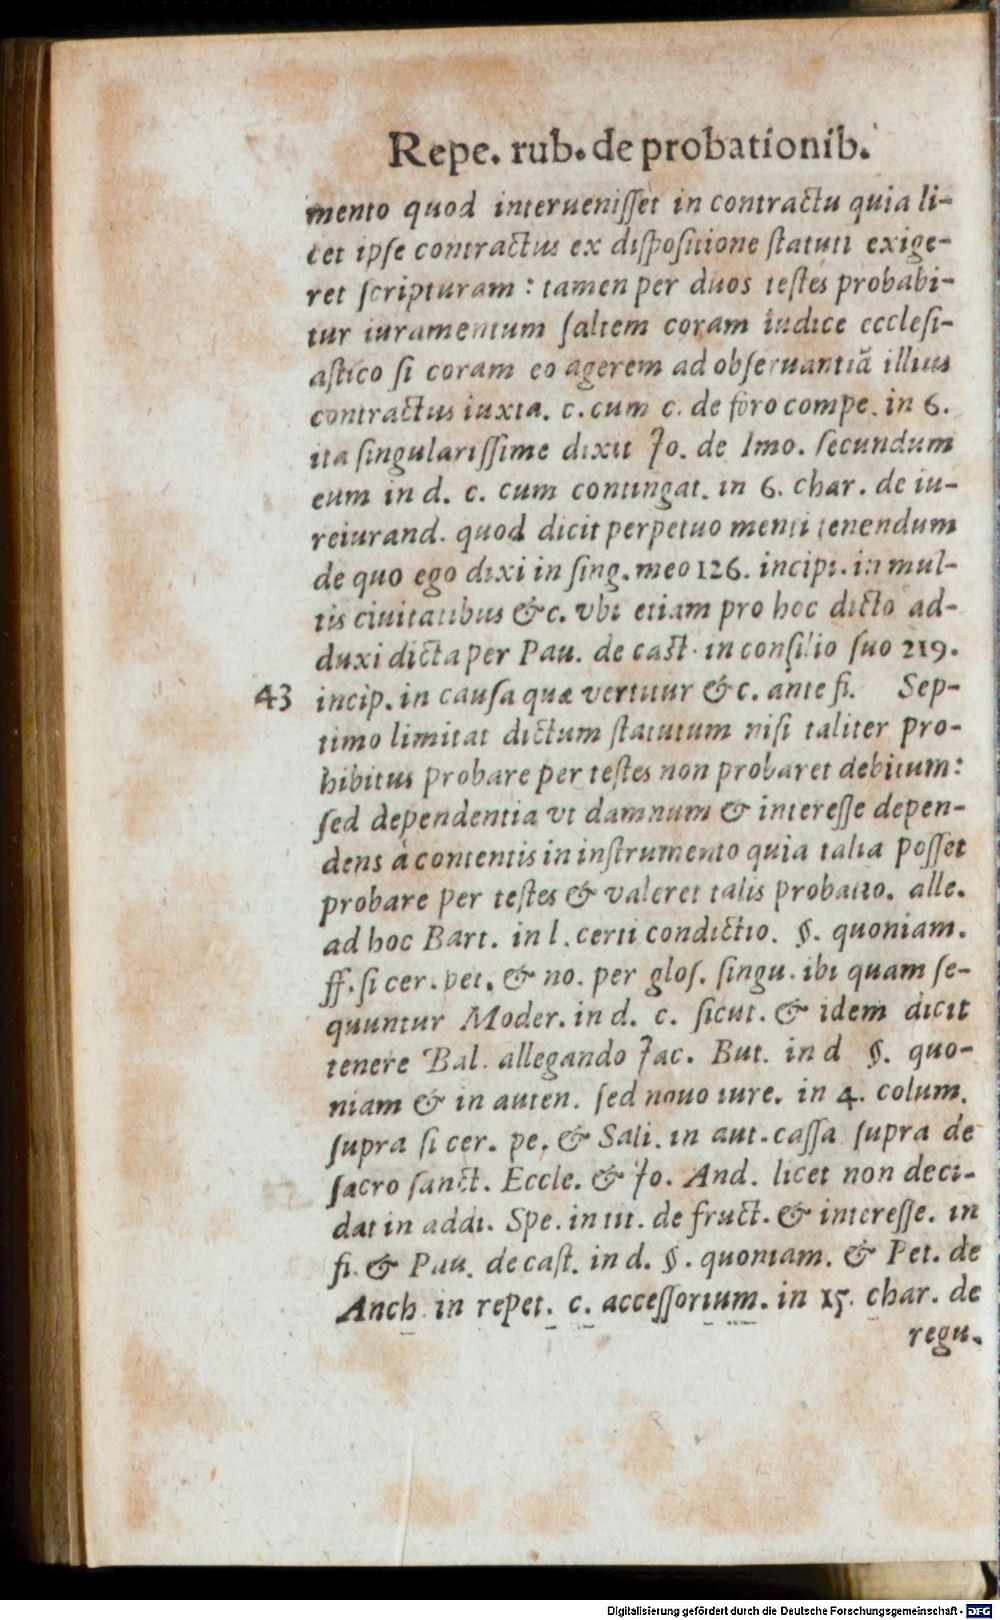 Repe. rub. de probationib.
mento quod interueniſſet in contractu quia li-
cet ipſe contractus ex diſpoſitione ſtatuti exige-
ret ſcripturam : tamen per duos teſtes probabi-
tur iuramentum ſaltem coram iudice eccleſi-
aſtico ſi coram eo agerem ad obſeruantiā illius
contractus iuxta. c. cum c. de foro compe. in 6.
ita ſingulariſſime dixit Jo. de Imo. ſecundum
eum in d. c. cum contingat. in 6. char. de iu-
reiurand. quod dicit perpetuo menti tenendum
de quo ego dixi in ſing. meo 126. incipi. in mul-
tis ciuitatibus &c. vbi etiam pro hoc dicto ad-
duxi dicta per Pau. de caſt. in conſilio ſuo 219.
43 incip. in cauſa quæ vertitur &c. ante fi. Sep-
timo limitat dictum ſtatutum niſi taliter pro-
hibitus probare per teſtes non probaret debitum:
ſed dependentia vt damnum & intereſſe depen-
dens à contentis in inſtrumento quia talia poſſet
probare per teſtes & valeret talis probatio. alle.
ad hoc Bart. in l. certi condictio. §. quoniam.
ff. ſi cer. pet. & no. per gloſ. ſingu. ibi quam ſe-
quuntur Moder. in d. c. ſicut. & idem dicit
tenere Bal. allegando Jac. But. in d §. quo-
niam & in auten. ſed nouo iure. in 4. colum.
ſupra ſi cer. pe. & Sali. in aut. caſſa ſupra de
ſacro ſanct. Eccle. & Jo. And. licet non deci-
dat in addi. Spe. in tit. de fruct. & intereſſe. in
fi. & Pau. de caſt. in d. §. quoniam. & Pet. de
Anch in repet. c. acceſſorium. in 15. char. de
regu.
Digitalisierung gefördert durch die Deutsche Forschungsgemeinschaft - DFG